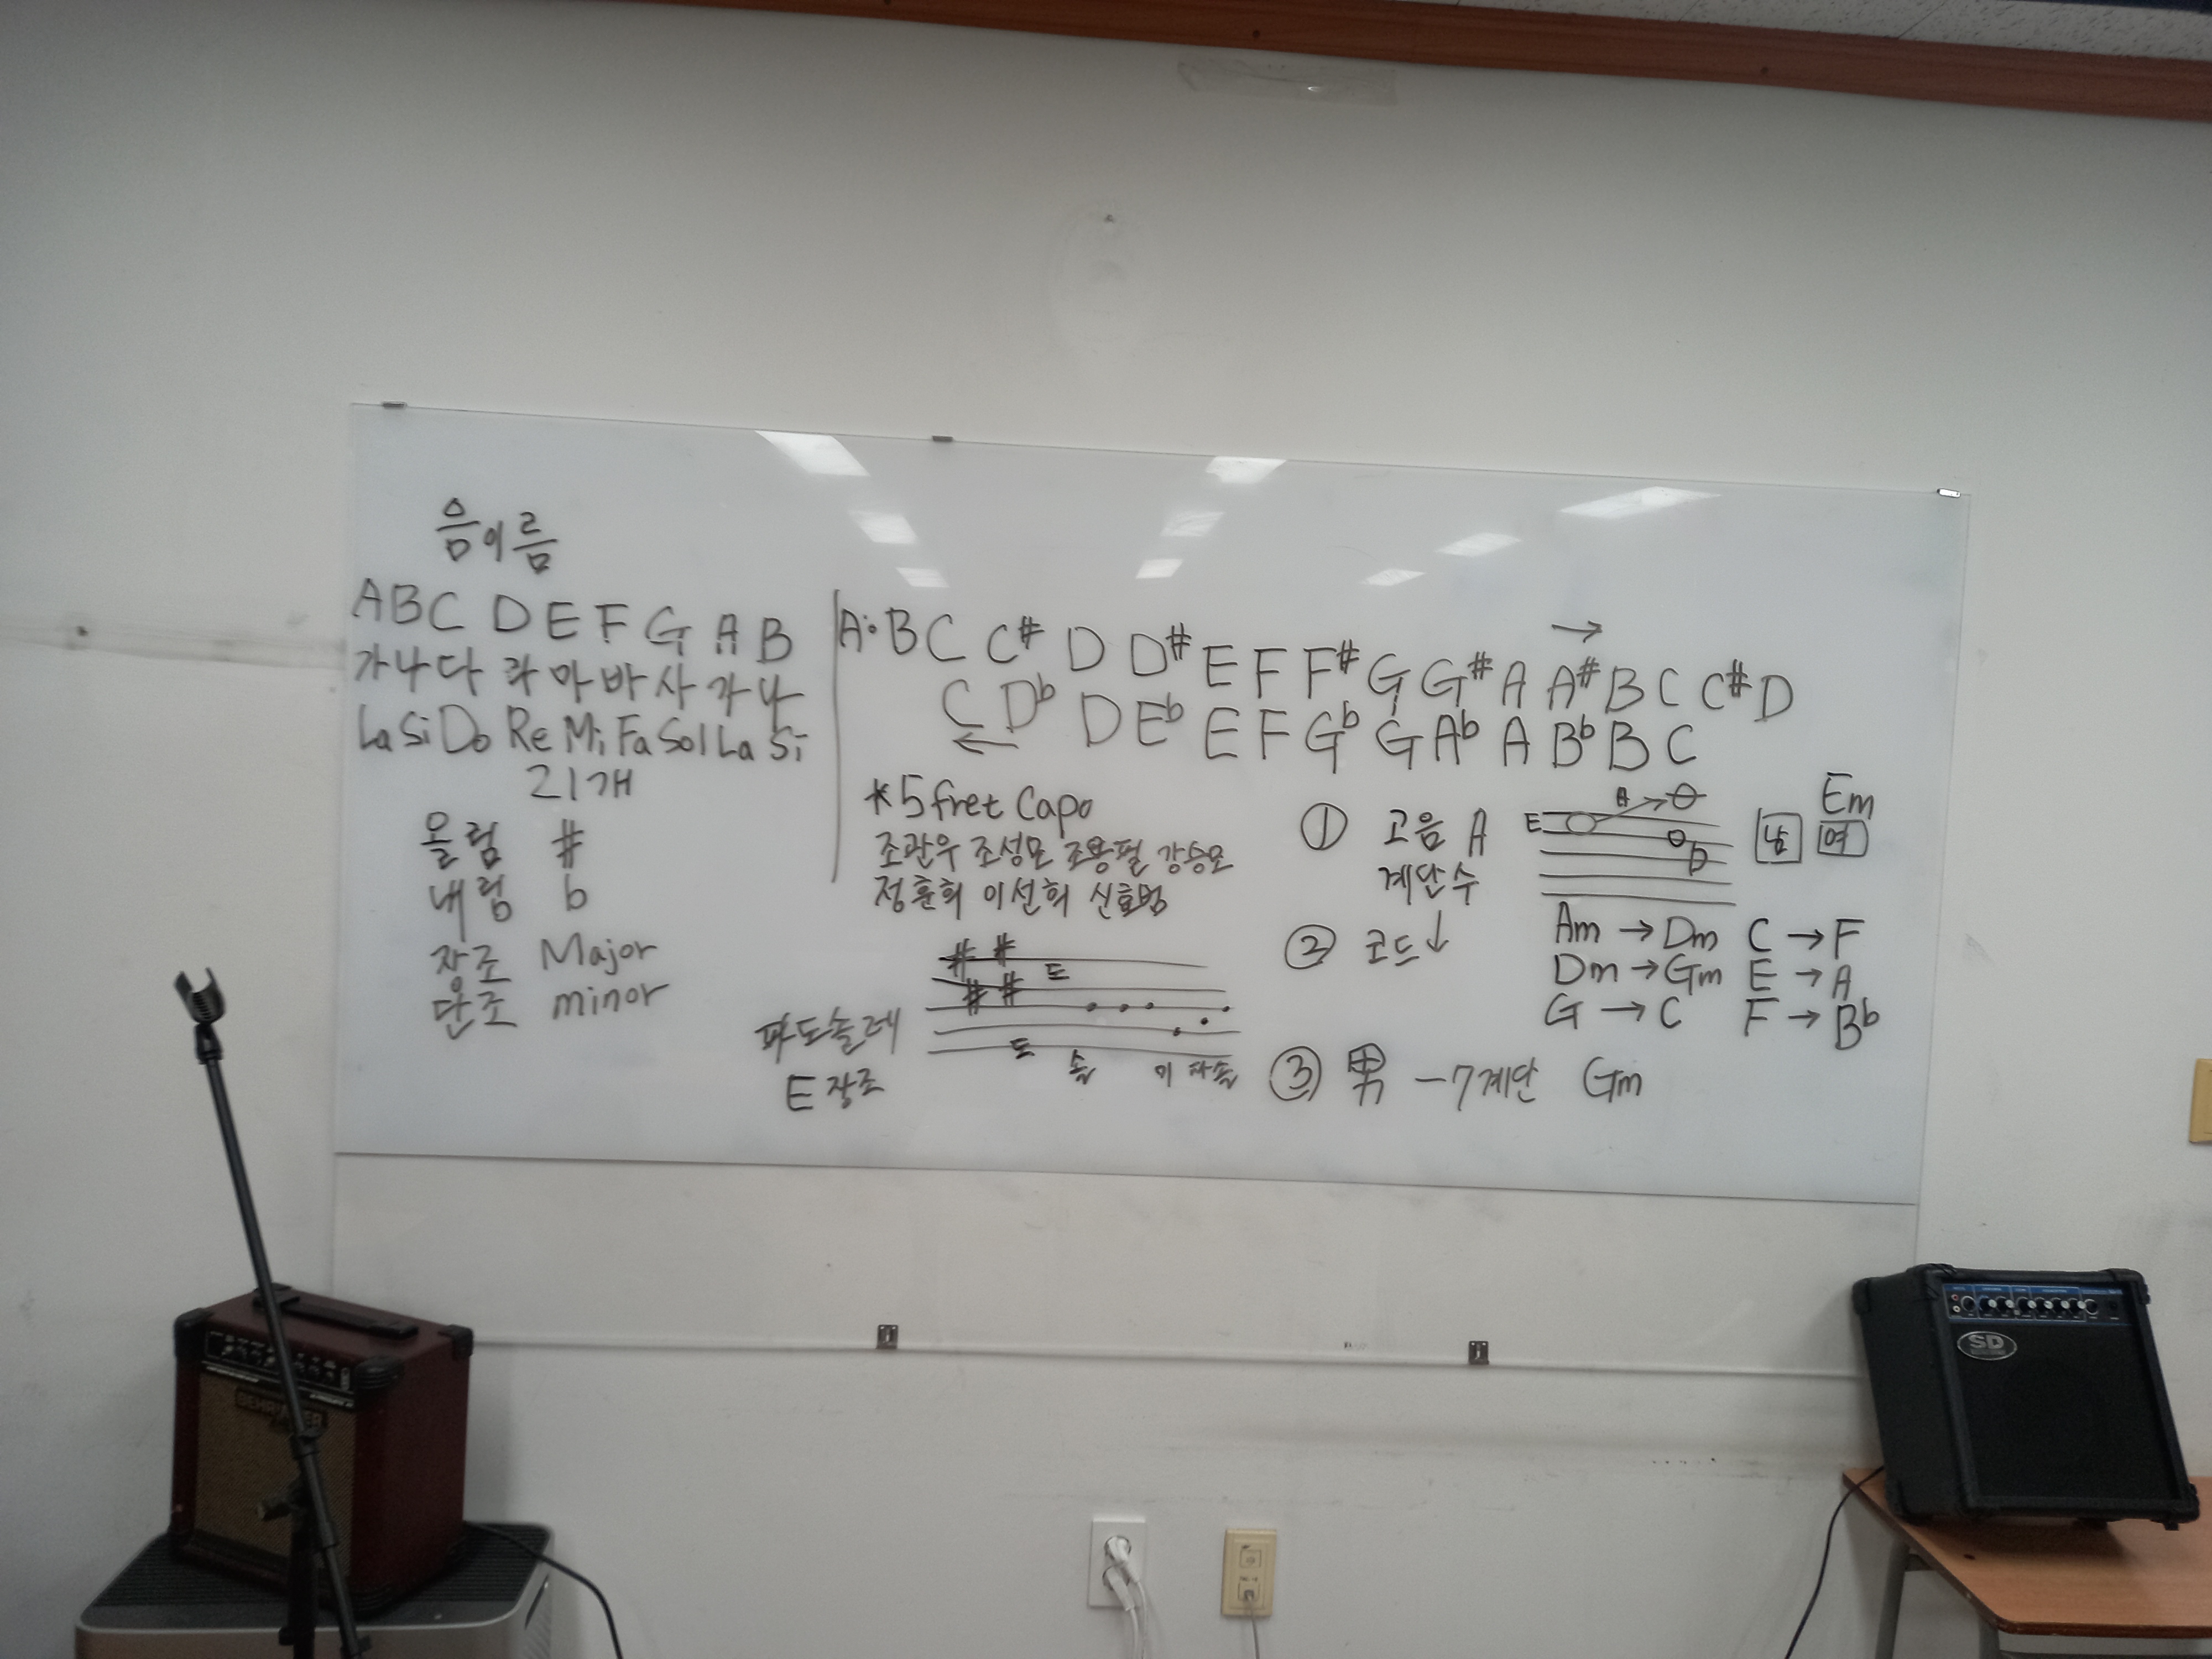 음이름
A B C D E F G A B
가 나 다 라 마 바 사 가 나
La Si Do Re Mi Fa Sol La Si
21개
올림 #
내림 b
장조 Major
단조 minor
A• B C C# D D# E F F# G G# A A# B C C# D
→
C Db D Eb E F Gb G Ab A Bb B C
←
*5 fret Capo
조관우 조성모 조용필 강승모
정훈희 이선희 신효범
# #
# #
도
파도솔레
E장조
도 솔 미 파 솔
① 고음 A
계단수
E A
b
남 여
Em
② 코드↓
Am → Dm C → F
Dm → Gm E → A
G → C F → Bb
③ 男 -7계단 Gm
BEHRINGER
SD